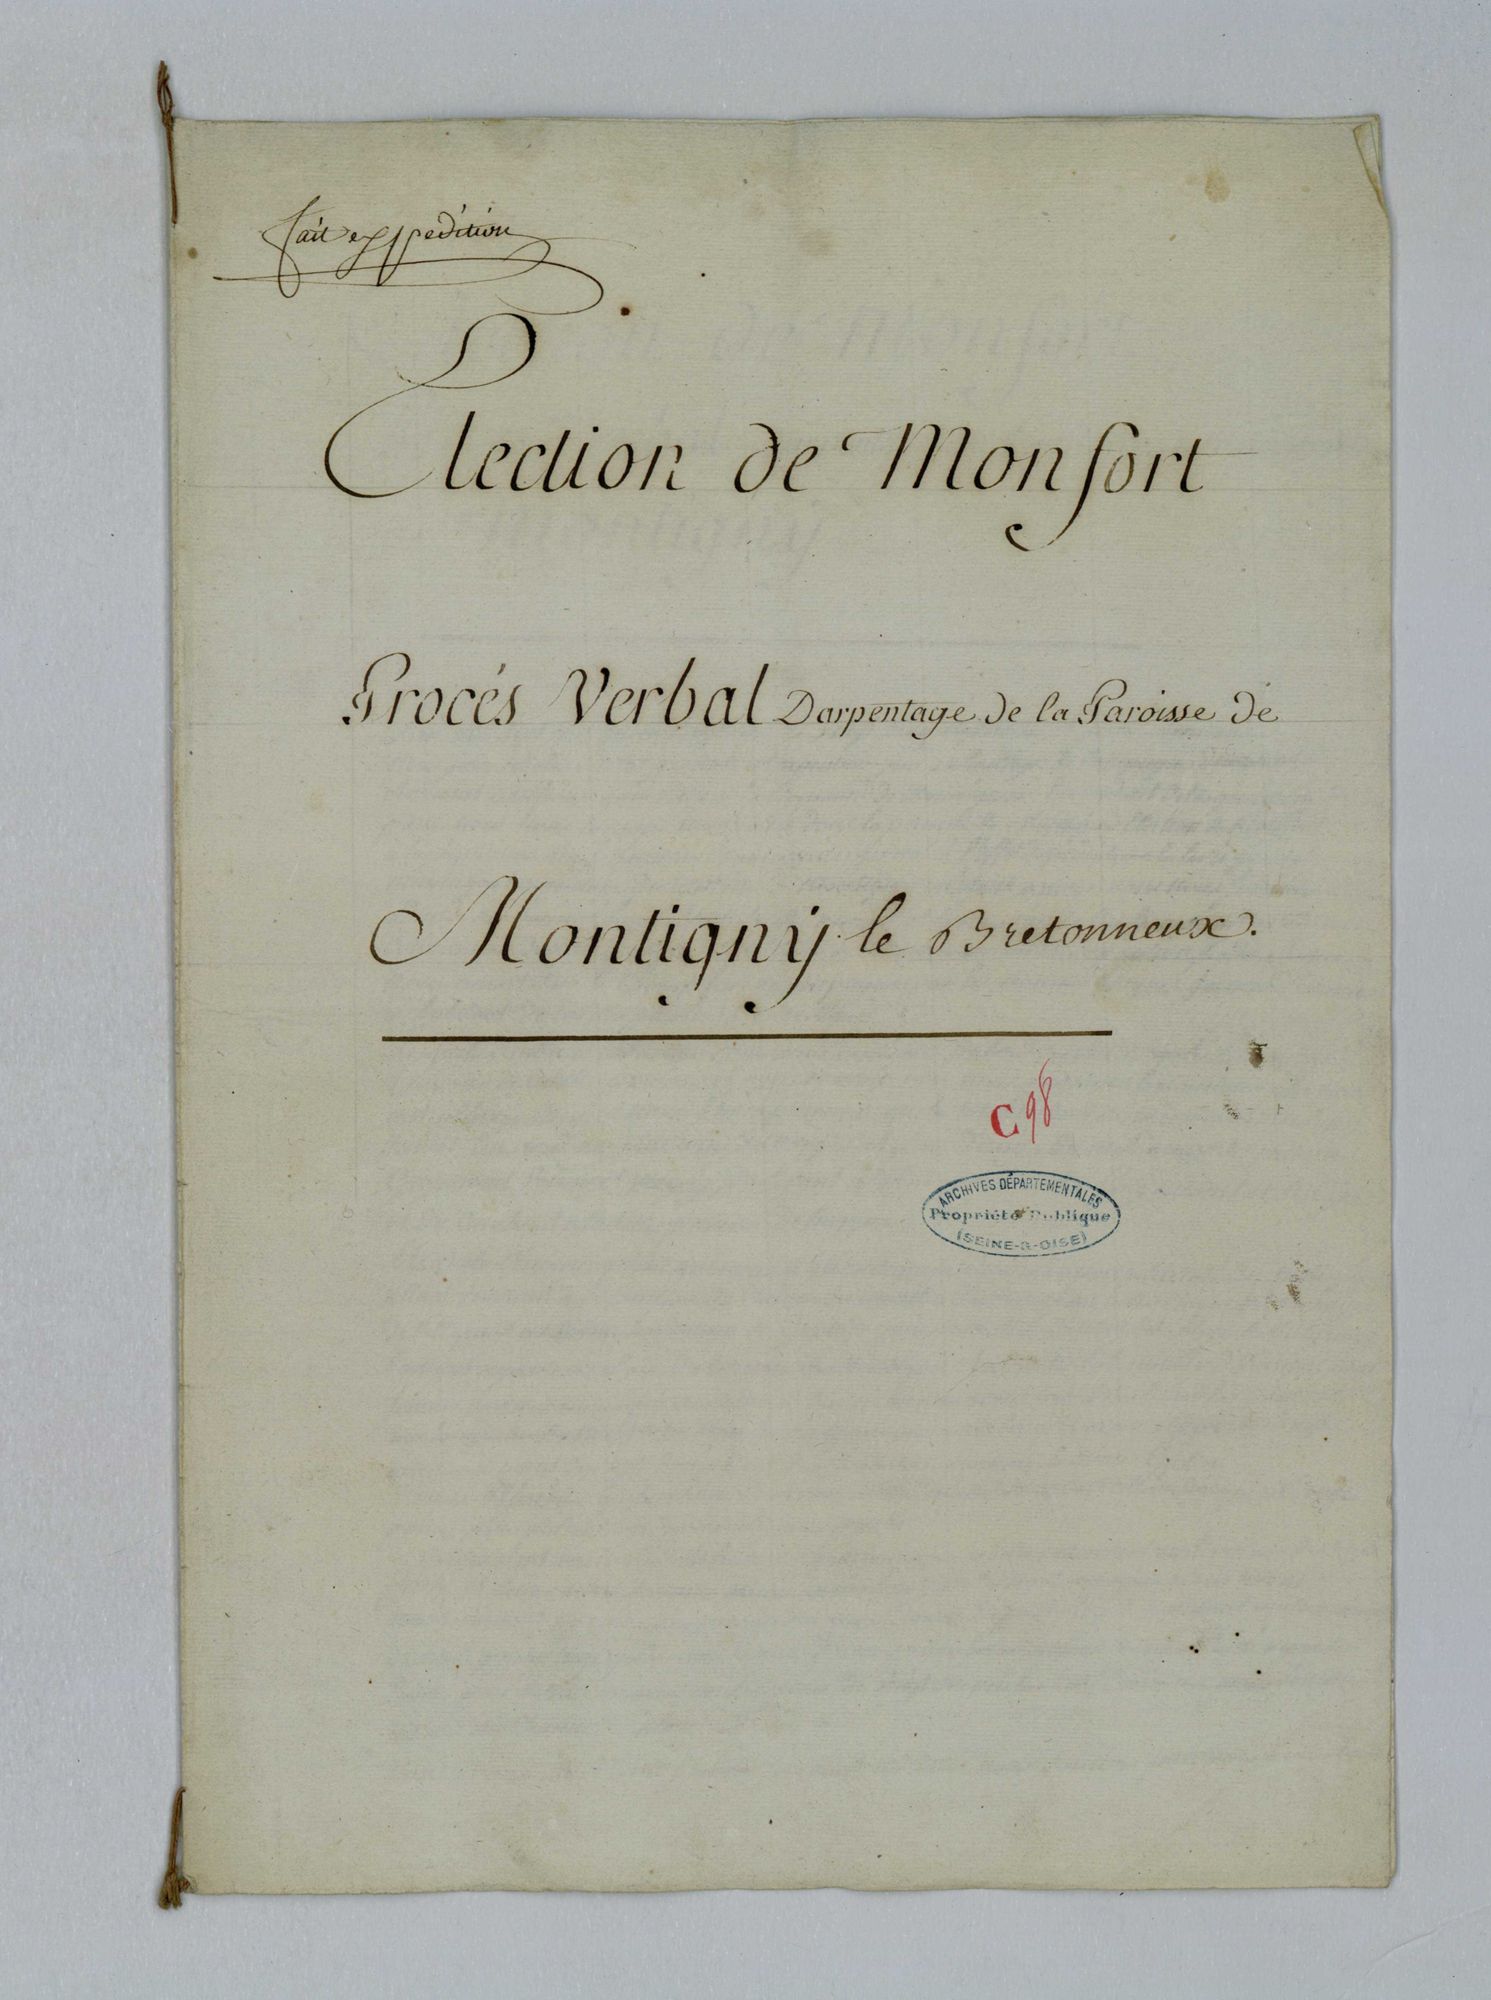 fait expedition
Election de Monfort
Procés Verbal Darpentage de la Paroisse de
Montigny le Bretonneux.
C 98
ARCHIVES DÉPARTEMENTALES
Propriété Publique
(SEINE-&-OISE)